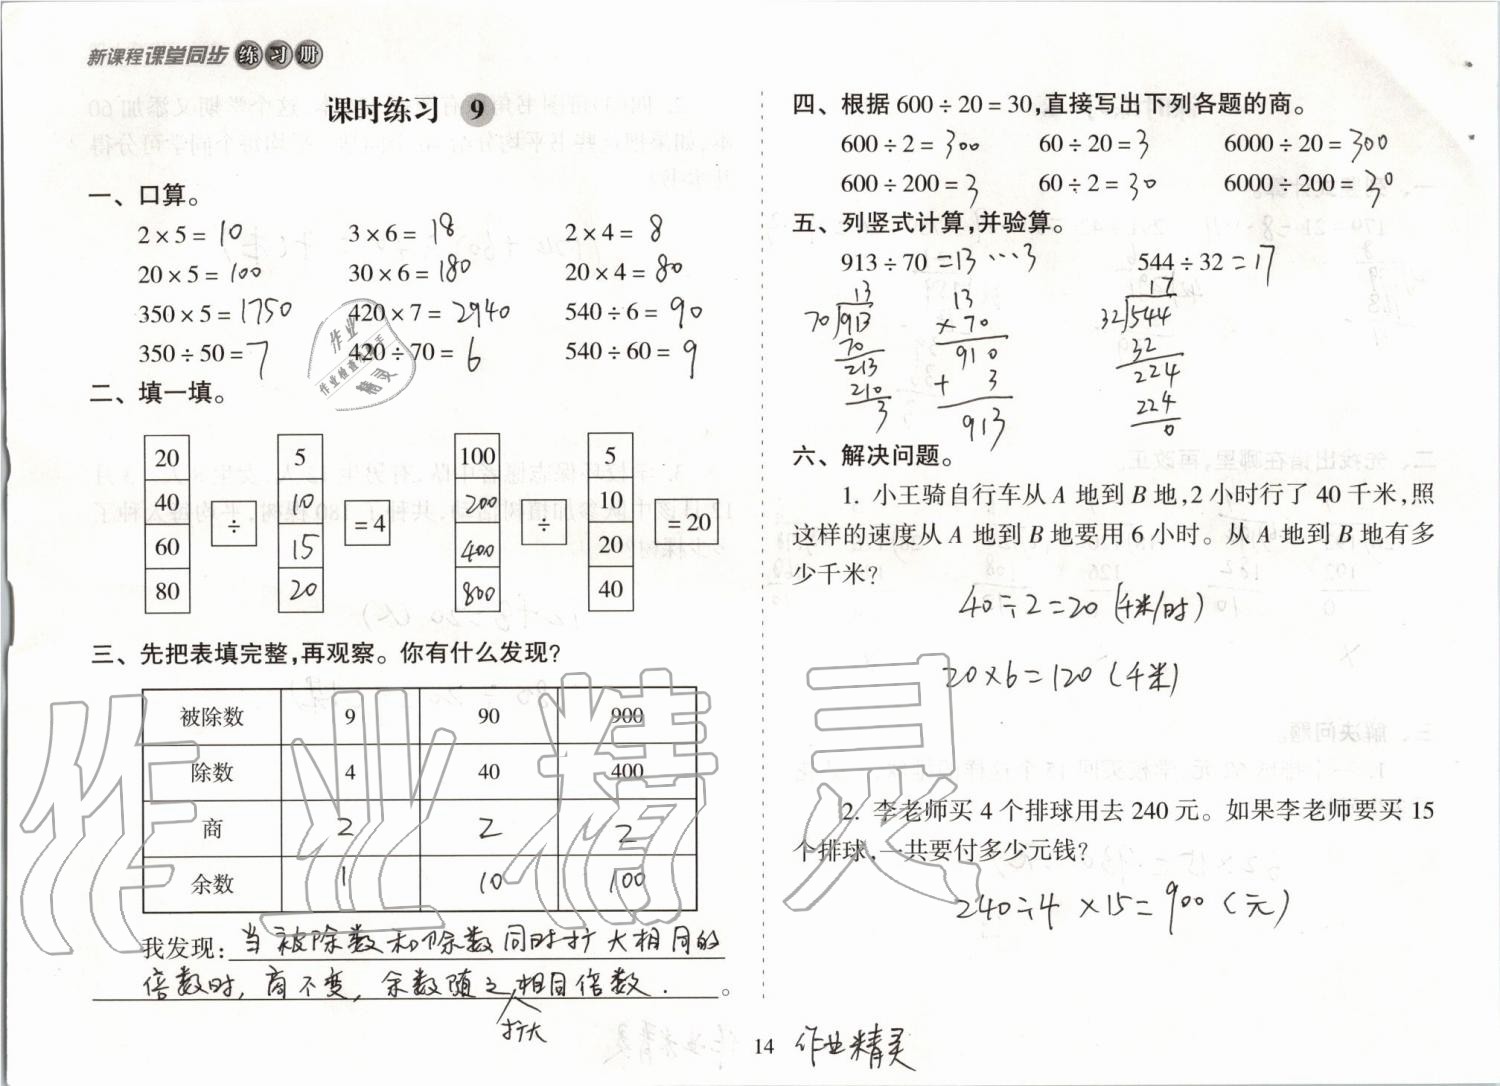 新课程课堂同步练习册
课时练习 9
一、口算。
2×5= 10 3×6= 18 2×4= 8
20×5= 100 30×6= 180 20×4= 80
350×5= 1750 420×7= 2940 540÷6= 90
350÷50= 7 420÷70= 6 540÷60= 9
作业
作业检查
精灵
二、填一填。
20 5 100 5
40 10 200 10
÷ =4 ÷ =20
60 15 400 20
80 20 800 40
三、先把表填完整,再观察。你有什么发现?
被除数 9 90 900
除数 4 40 400
商 2 2 2
余数 1 10 100
我发现: 当被除数和除数同时扩大相同的
倍数时, 商不变, 余数随之扩大相同倍数. 。
四、根据 600÷20=30,直接写出下列各题的商。
600÷2= 300 60÷20= 3 6000÷20= 300
600÷200= 3 60÷2= 30 6000÷200= 30
五、列竖式计算,并验算。
913÷70 =13 …3 544÷32 =17
13 13 17
70 913 ×70 32 544
70 910 32
213 + 3 224
210 913 224
3 0
六、解决问题。
1. 小王骑自行车从 A 地到 B 地,2 小时行了 40 千米,照
这样的速度从 A 地到 B 地要用 6 小时。从 A 地到 B 地有多
少千米?
40÷2=20 (千米/时)
20×6=120 (千米)
2. 李老师买 4 个排球用去 240 元。如果李老师要买 15
个排球,一共要付多少元钱?
240÷4 ×15= 900 (元)
14 作业精灵
作业精灵